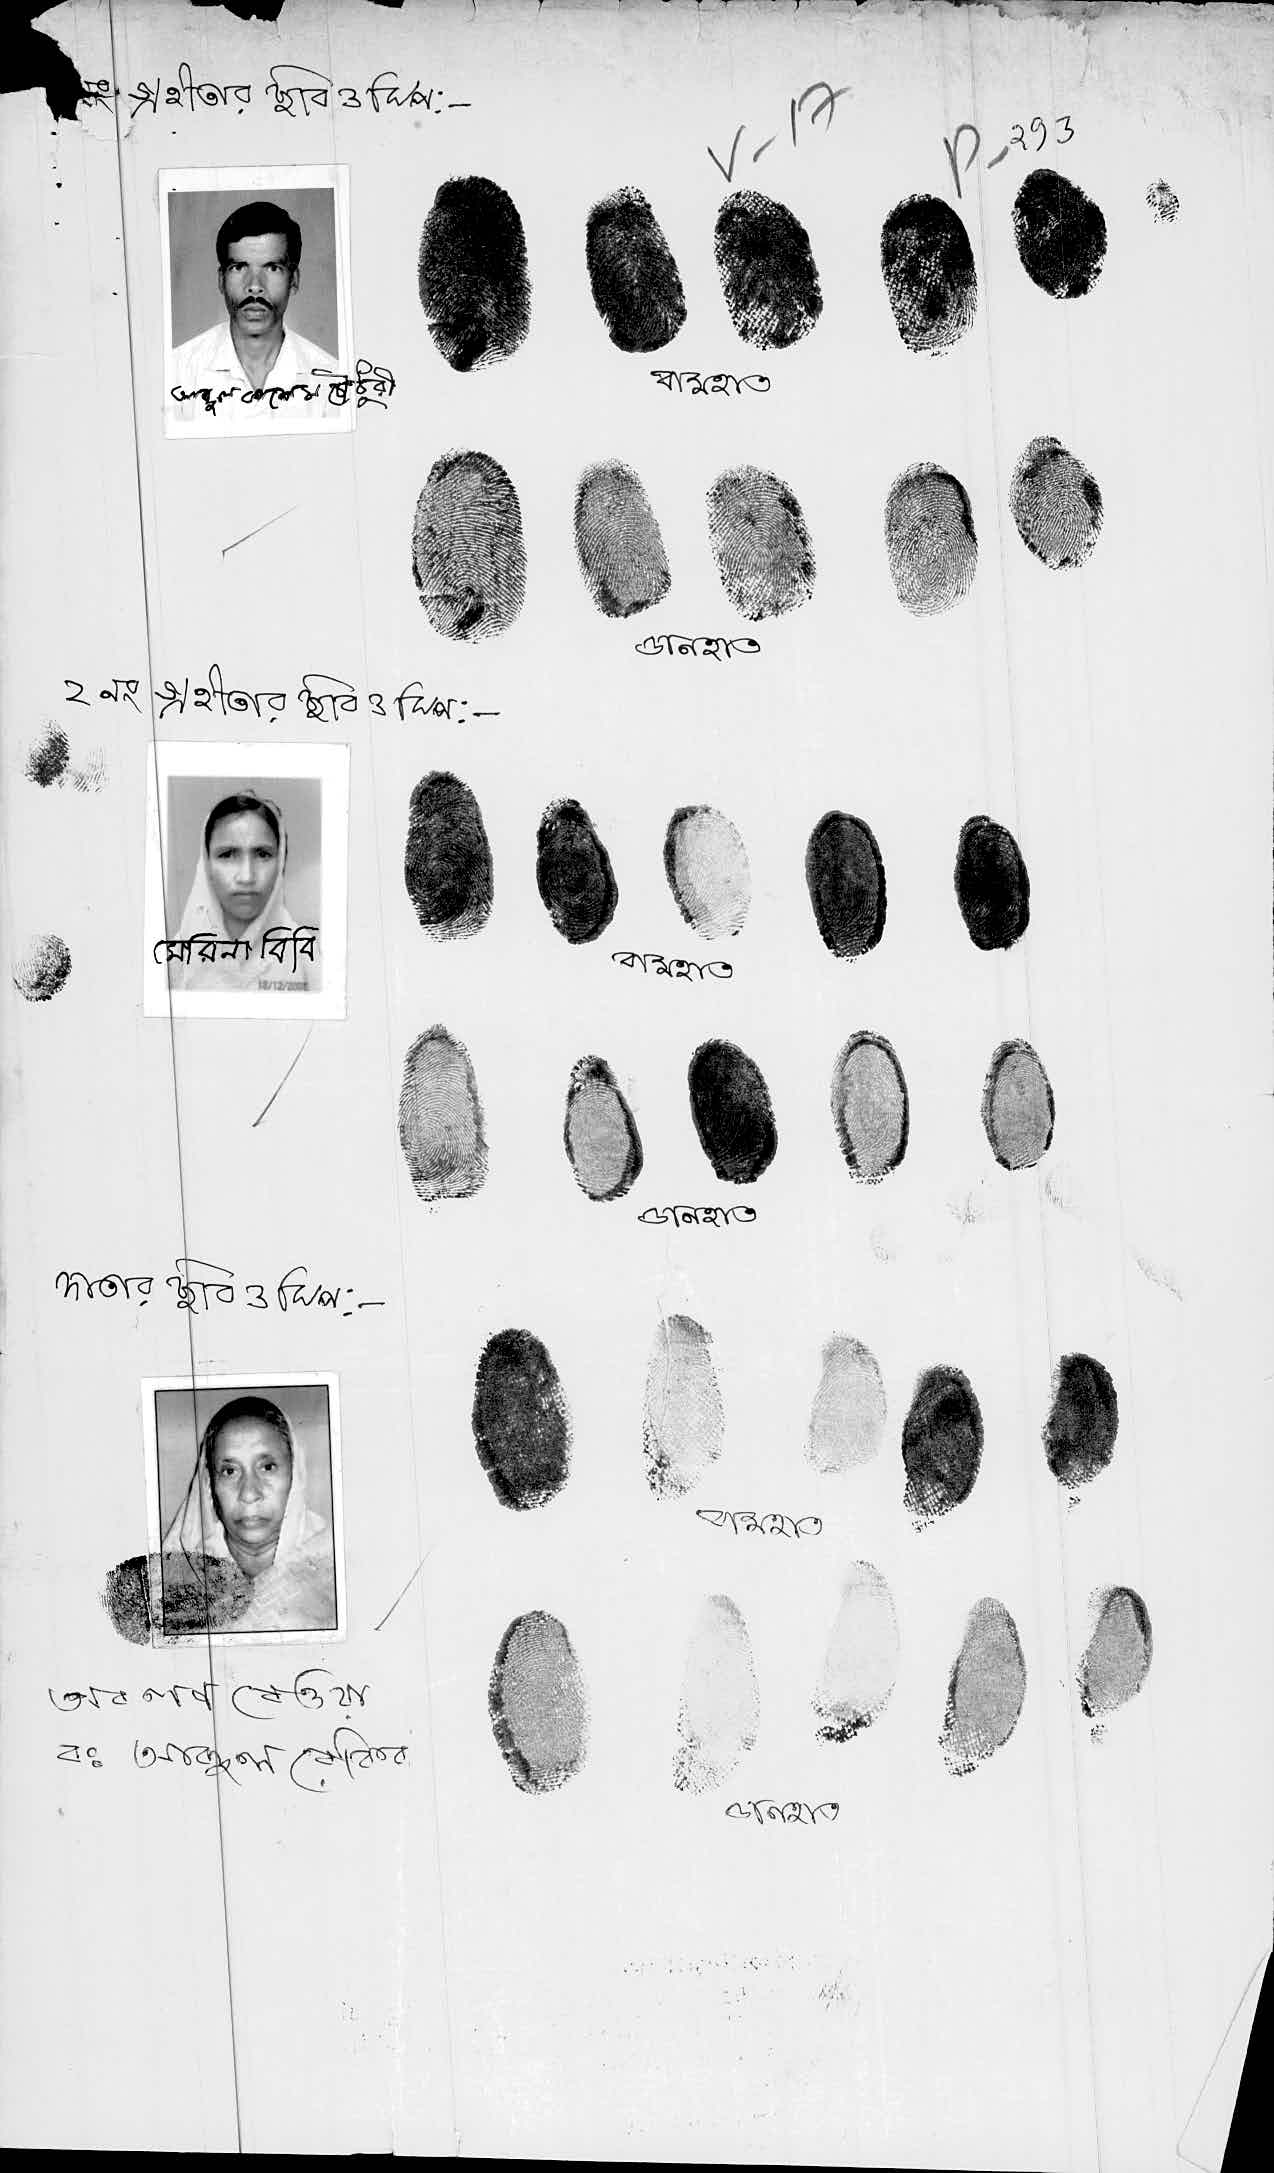 নং গ্রহীতার ছবি ও টিপ:-
V-17
P-293
আবুল কাশেম চৌধুরী
বামহাত
ডানহাত
২ নং গ্রহীতার ছবি ও টিপ:-
মেরিনা বিবি
18/12/2008
বামহাত
ডানহাত
দাতার ছবি ও টিপ:-
বামহাত
বেওয়া
বঃ আব্দুল
ডানহাত